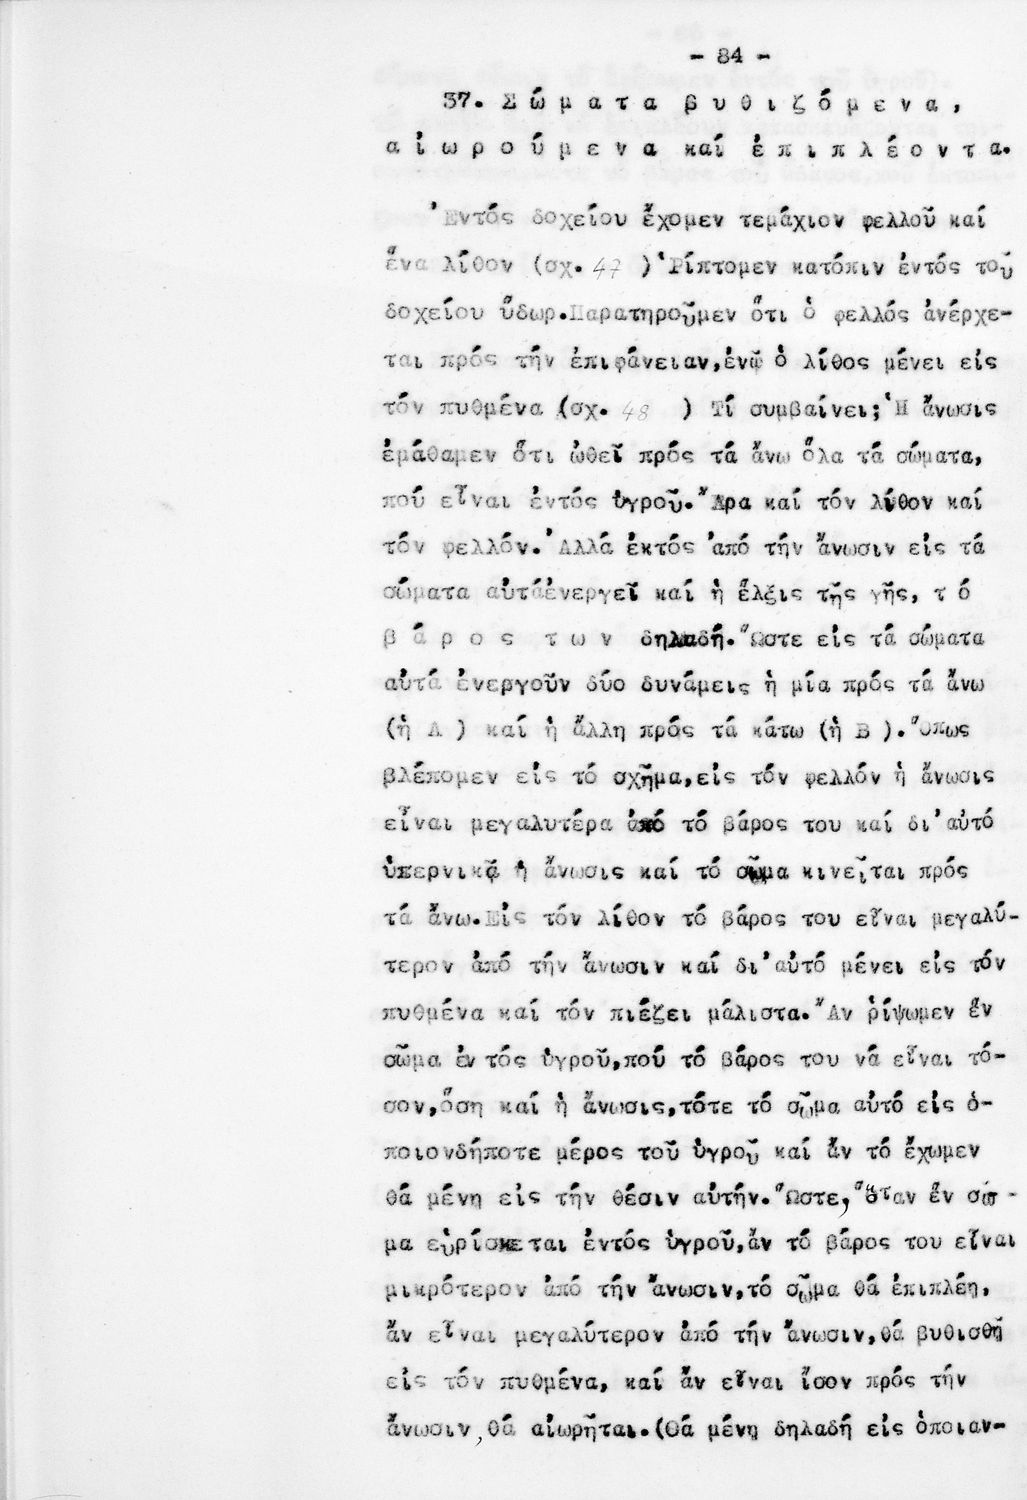 - 84 -
37. Σ ώ μ α τ α β υ θ ι ζ ό μ ε ν α ,
α ἰ ω ρ ο ύ μ ε ν α καί ἐ π ι π λ έ ο ν τ α.
Ἐντός δοχείου ἔχομεν τεμάχιον φελλοῦ καί
ἕνα λίθον (σχ. 47 ) Ῥίπτομεν κατόπιν ἐντός τοῦ
δοχείου ὕδωρ.Παρατηροῦμεν ὅτι ὁ φελλός ἀνέρχε-
ται πρός τήν ἐπιφάνειαν,ἐνῷ ὁ λίθος μένει εἰς
τόν πυθμένα (σχ. 48 ) Τί συμβαίνει; Ἡ ἄνωσις
ἐμάθαμεν ὅτι ὠθεῖ πρός τά ἄνω ὅλα τά σώματα,
πού εἶναι ἐντός ὑγροῦ. Ἄρα καί τόν λίθον καί
τόν φελλόν. Ἀλλά ἐκτός ἀπό τήν ἄνωσιν εἰς τά
σώματα αὐτάἐνεργεῖ καί ἡ ἕλξις τῆς γῆς, τ ό
β ά ρ ο ς τ ω ν δηλαδή. Ὥστε εἰς τά σώματα
αὐτά ἐνεργοῦν δύο δυνάμεις ἡ μία πρός τά ἄνω
(ἡ Α ) καί ἡ ἄλλη πρός τά κάτω (ἡ Β ). Ὅπως
βλέπομεν εἰς τό σχῆμα,εἰς τόν φελλόν ἡ ἄνωσις
εἶναι μεγαλυτέρα ἀπό τό βάρος του καί δι'αὐτό
ὑπερνικᾷ ἡ ἄνωσις καί τό σῶμα κινεῖται πρός
τά ἄνω.Εἰς τόν λίθον τό βάρος του εἶναι μεγαλύ-
τερον ἀπό τήν ἄνωσιν καί δι'αὐτό μένει εἰς τόν
πυθμένα καί τόν πιέζει μάλιστα. Ἄν ῥίψωμεν ἕν
σῶμα ἐν τός ὑγροῦ,πού τό βάρος του νά εἶναι τό-
σον,ὅση καί ἡ ἄνωσις,τότε τό σῶμα αὐτό εἰς ὁ-
ποιονδήποτε μέρος τοῦ ὑγροῦ καί ἄν τό ἔχωμεν
θά μένῃ εἰς τήν θέσιν αὐτήν. Ὥστε, ὅταν ἕν σῶ -
μα εὑρίσκεται ἐντός ὑγροῦ,ἄν τό βάρος του εἶναι
μικρότερον ἀπό τήν ἄνωσιν,τό σῶμα θά ἐπιπλέῃ,
ἄν εἶναι μεγαλύτερον ἀπό τήν ἄνωσιν,θά βυθισθῇ
εἰς τόν πυθμένα, καί ἄν εἶναι ἴσον πρός τήν
ἄνωσιν, θά αἰωρῆται.(Θά μένῃ δηλαδή εἰς ὁποιαν-